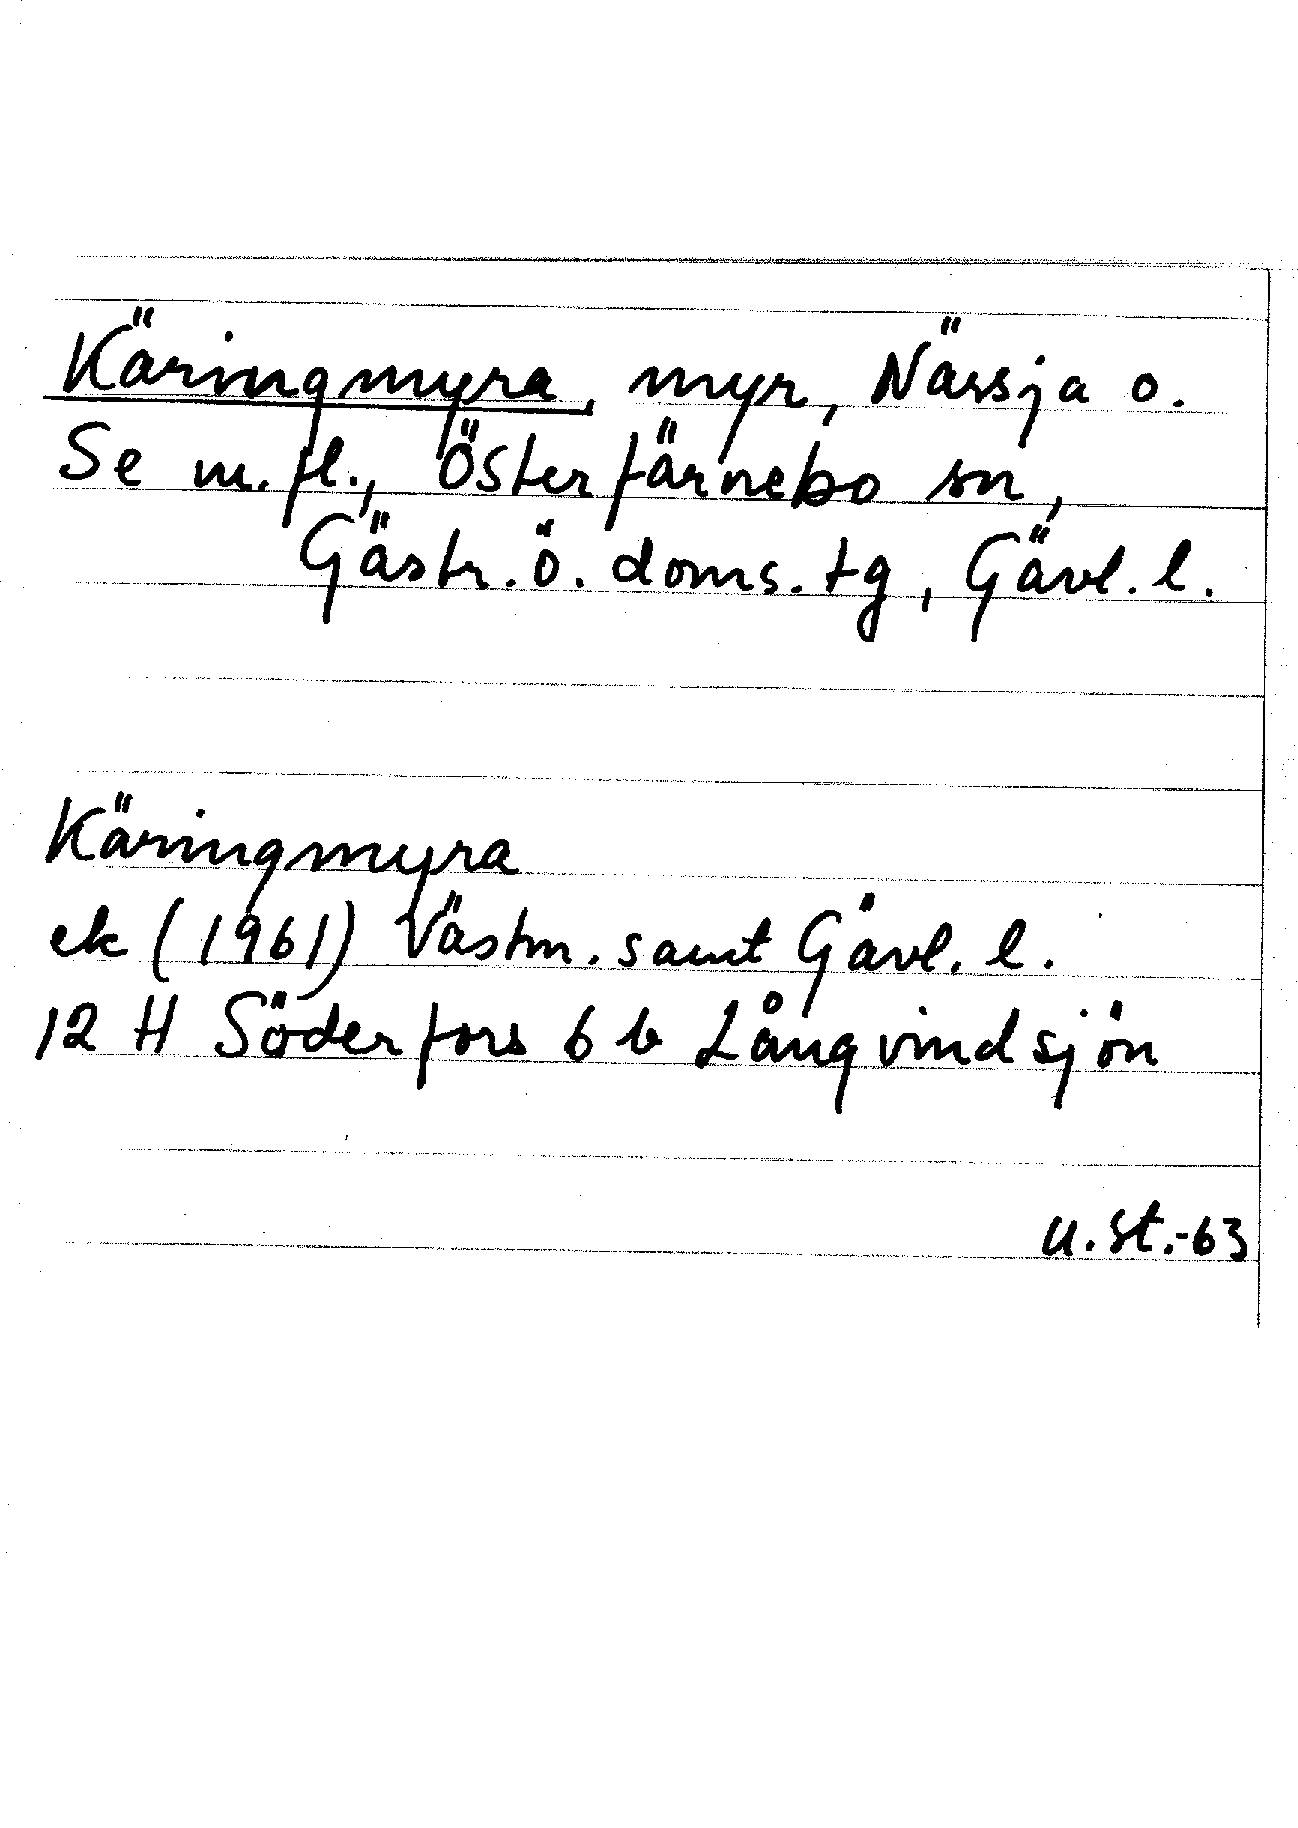 Käringmyra, myr, Närsja o.
Se m.fl., Österfärnebo sn,
Gästr. ö. doms. tg, Gävl. l.
Käringmyra
ek (1961) Västm. samt Gävl. l.
12 H Söderfors 6 b Långvindsjön
U.St.-63